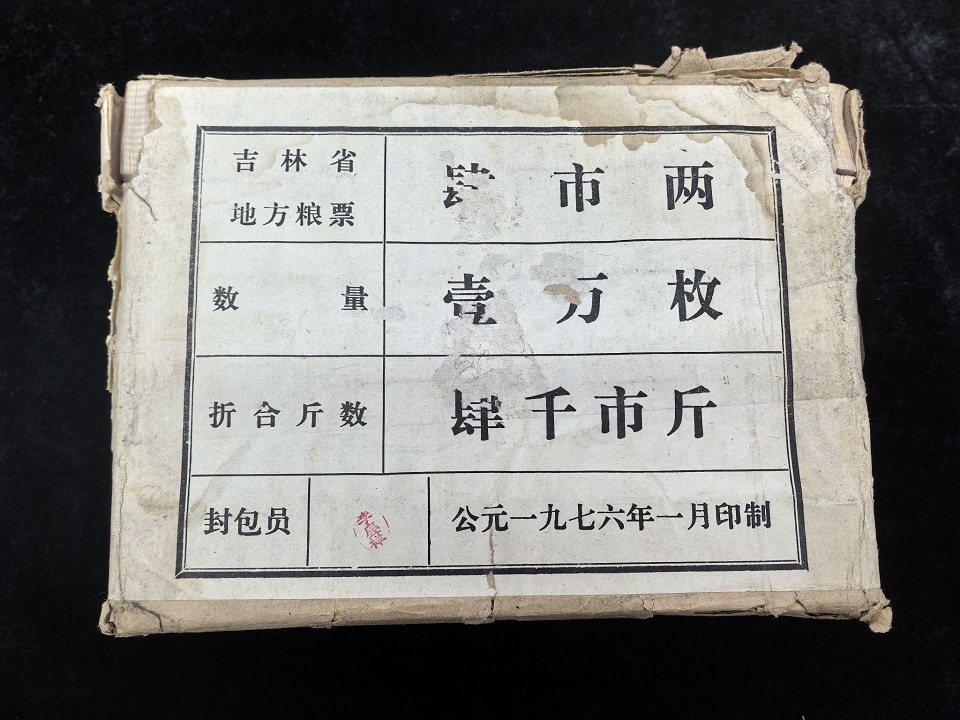 吉林省
地方粮票
肆市两
数量
壹万枚
折合斤数
肆千市斤
封包员
公元一九七六年一月印制